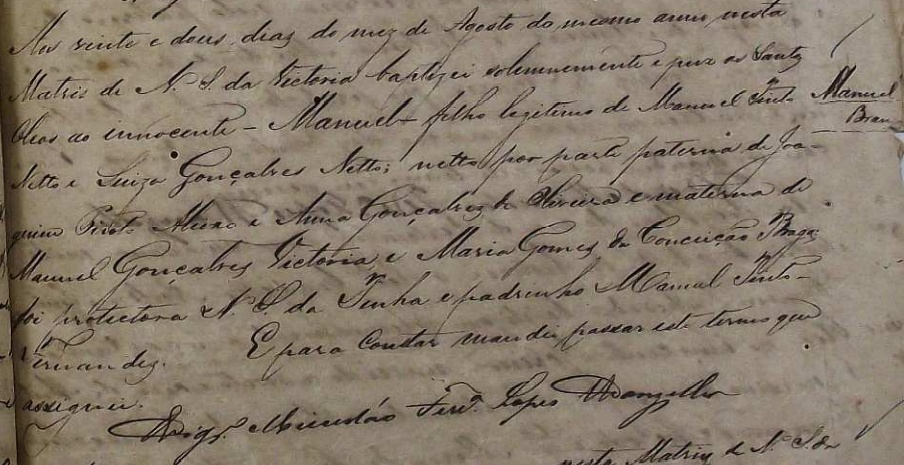 Aos vinte e dous dias do mez de Agosto do mesmo anno nesta
Matris de N. S. da Victoria baptizei solemnemente e puz os Santos
Oleos ao innocente - Manuel - filho legitimo de Manuel Pinto
Manuel
Bran
Netto e Luiza Gonçalves Netto; netto por parte paterna de Joa-
quim Pinto e Anna Gonçalvez de Oliveira e materna de
Manuel Gonçalves Victoria e Maria Gomes da Conceição Braga;
foi protectora N. S. da Penha e padrinho Manuel Pinto
Fernandez. E para constar mandei passar este termo que
assignei.
Vigr.º Miecesláo Ferr.ª Lopes Wanzeller
nesta Matriz de N. S. da